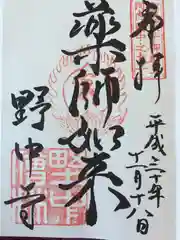 奉拝
平成三十年
十一月十八日
薬師如来
野中寺